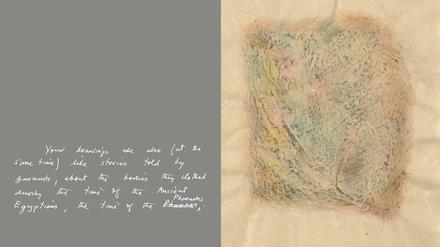 Your drawings are also (at the
same time) like stories told by
garments, about the bodies they clothed
during the time of the Ancient
Egyptians, the time of the Pharaohs.